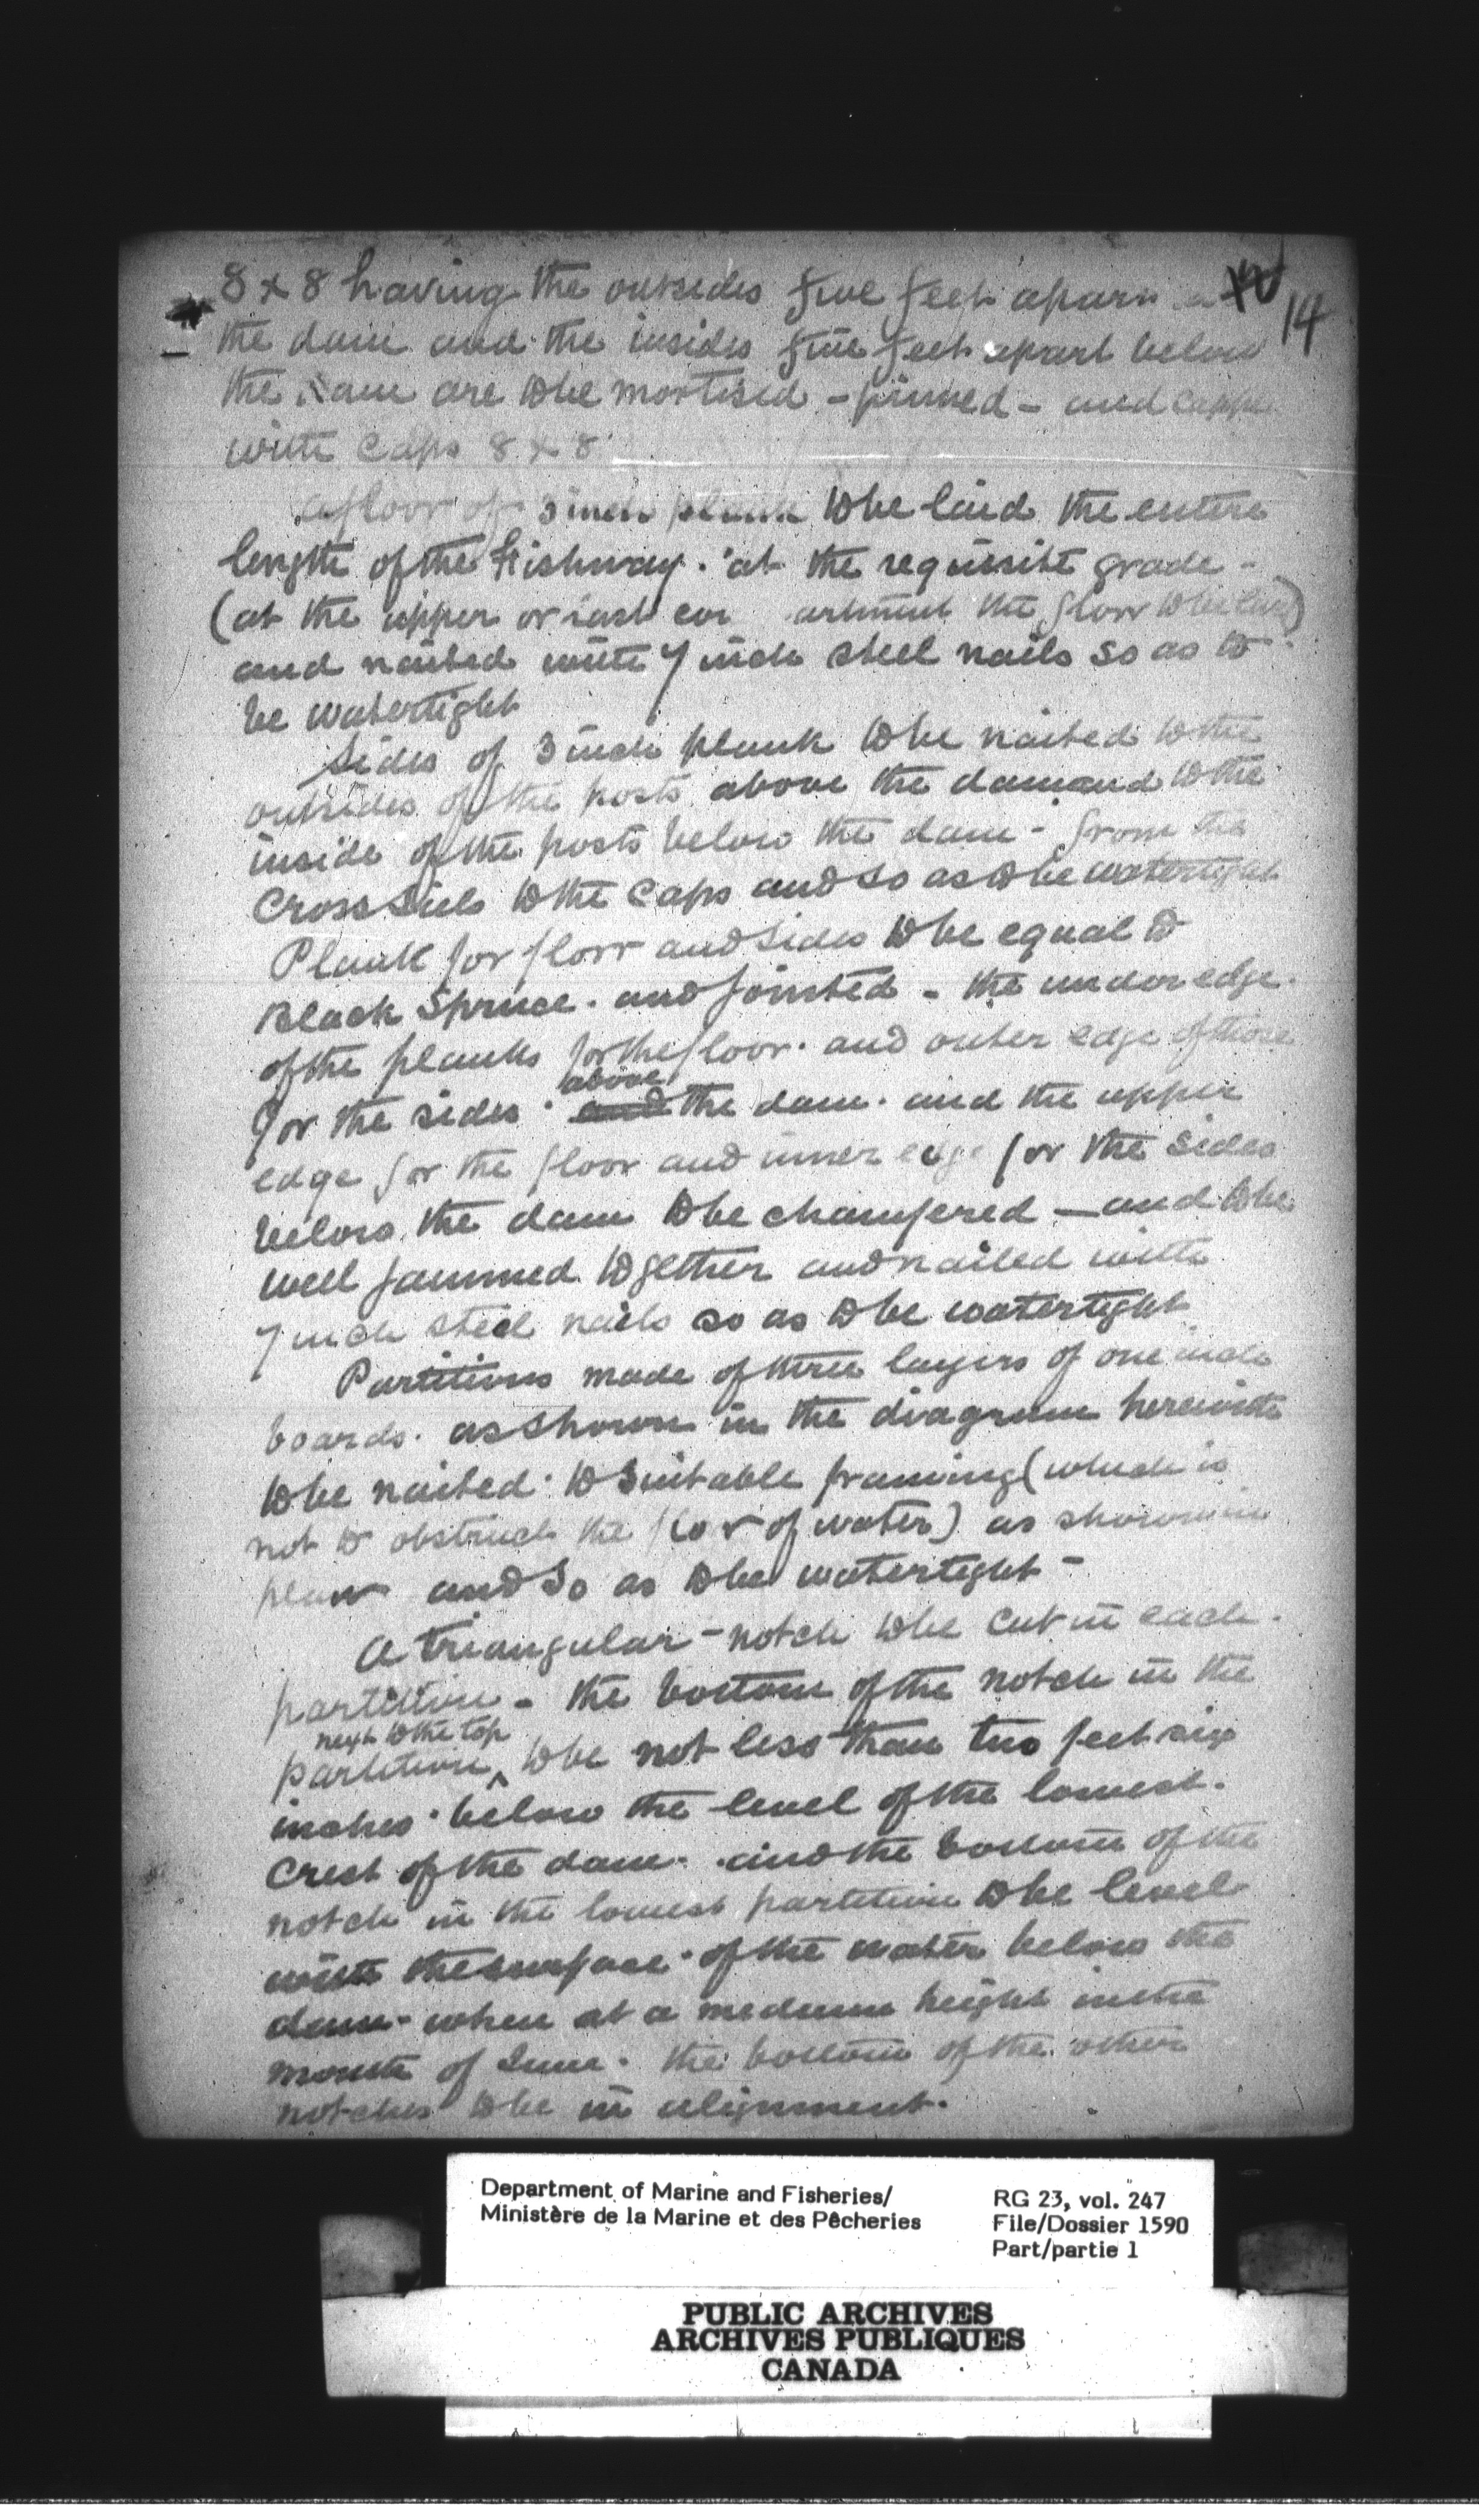 14
8 x 8 having the outsides five feet apart
the dam and the insides five feet apart below
the dam are to be mortised - pinned - and
with caps 8 x 8
a floor of 3 inch plank to be laid the entire
length of the Fishway. at the requisite grade -
(at the upper or last the floor to be level)
and nailed with 7 inch steel nails so as to
be watertight
Sides of 3 inch plank to be nailed to the
outsides of the posts above the dam and to the
inside of the posts below the dam - from the
cross sills to the caps and so as to be watertight
Plank for floor and sides to be equal to
Black Spruce. and jointed - the under edge
of the planks for the floor. and outer edge of those
for the sides above the dam. and the upper
edge for the floor and inner edge for the sides
below the dam to be chamfered - and to be
well jammed together and nailed with
7 inch steel nails so as to be watertight
Partitions made of three layers of one inch
boards. as shown in the diagram herewith
to be nailed to suitable framing (which is
not to obstruct the flow of water) as shown in
plan and so as to be watertight -
A triangular - notch to be cut in each
partition - the bottom of the notch in the
next to the top
partition ^ to be not less than two feet six
inches below the level of the lowest
crest of the dam. and the bottom of the
notch in the lowest partition to be level
with the surface of the water below the
dam - when at a medium height in the
month of June. the bottom of the other
notches to be in alignment.
Department of Marine and Fisheries/
Ministère de la Marine et des Pêcheries
RG 23, vol. 247
File/Dossier 1590
Part/partie 1
PUBLIC ARCHIVES
ARCHIVES PUBLIQUES
CANADA